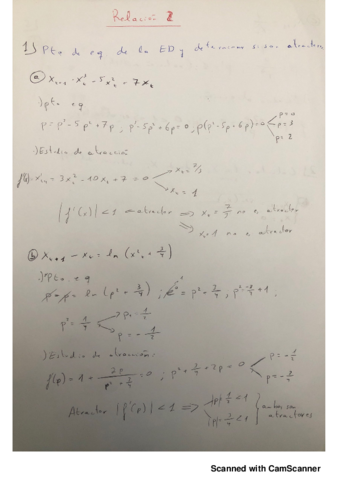 Relación 2
1) Pto de eq de la ED y determinar si son atractores
a) x_{n+1} = x³_n - 5x²_n - 7x_n
·) pto eq
p = p³ - 5p² + 7p , p³ - 5p² + 6p = 0 , p(p² - 5p + 6) = 0 p = 0
p = 3
p = 2
·) Estudio de atracción
= 3x²_n - 10x_n + 7 = 0 x_n = 7/3
x_n = 1
|f'(x)| < 1 atractor ⇒ no es atractor
⇒ no es atractor
b) x_{n+1} - x_n = ln (x²_n + 3/4)
·) Pto eq
ln (p² + 3/4) ; p² + 3/4 = 1
p² = 1/4 p = 1/2
p = - 1/2
·) Estudio de atracción:
f'(p) = 1 + 2p / p² + 3/4 = 0 ; p² + 3/4 + 2p = 0
Atractor |f'(p)| < 1 ⇒ ambos son
atractores
Scanned with CamScanner